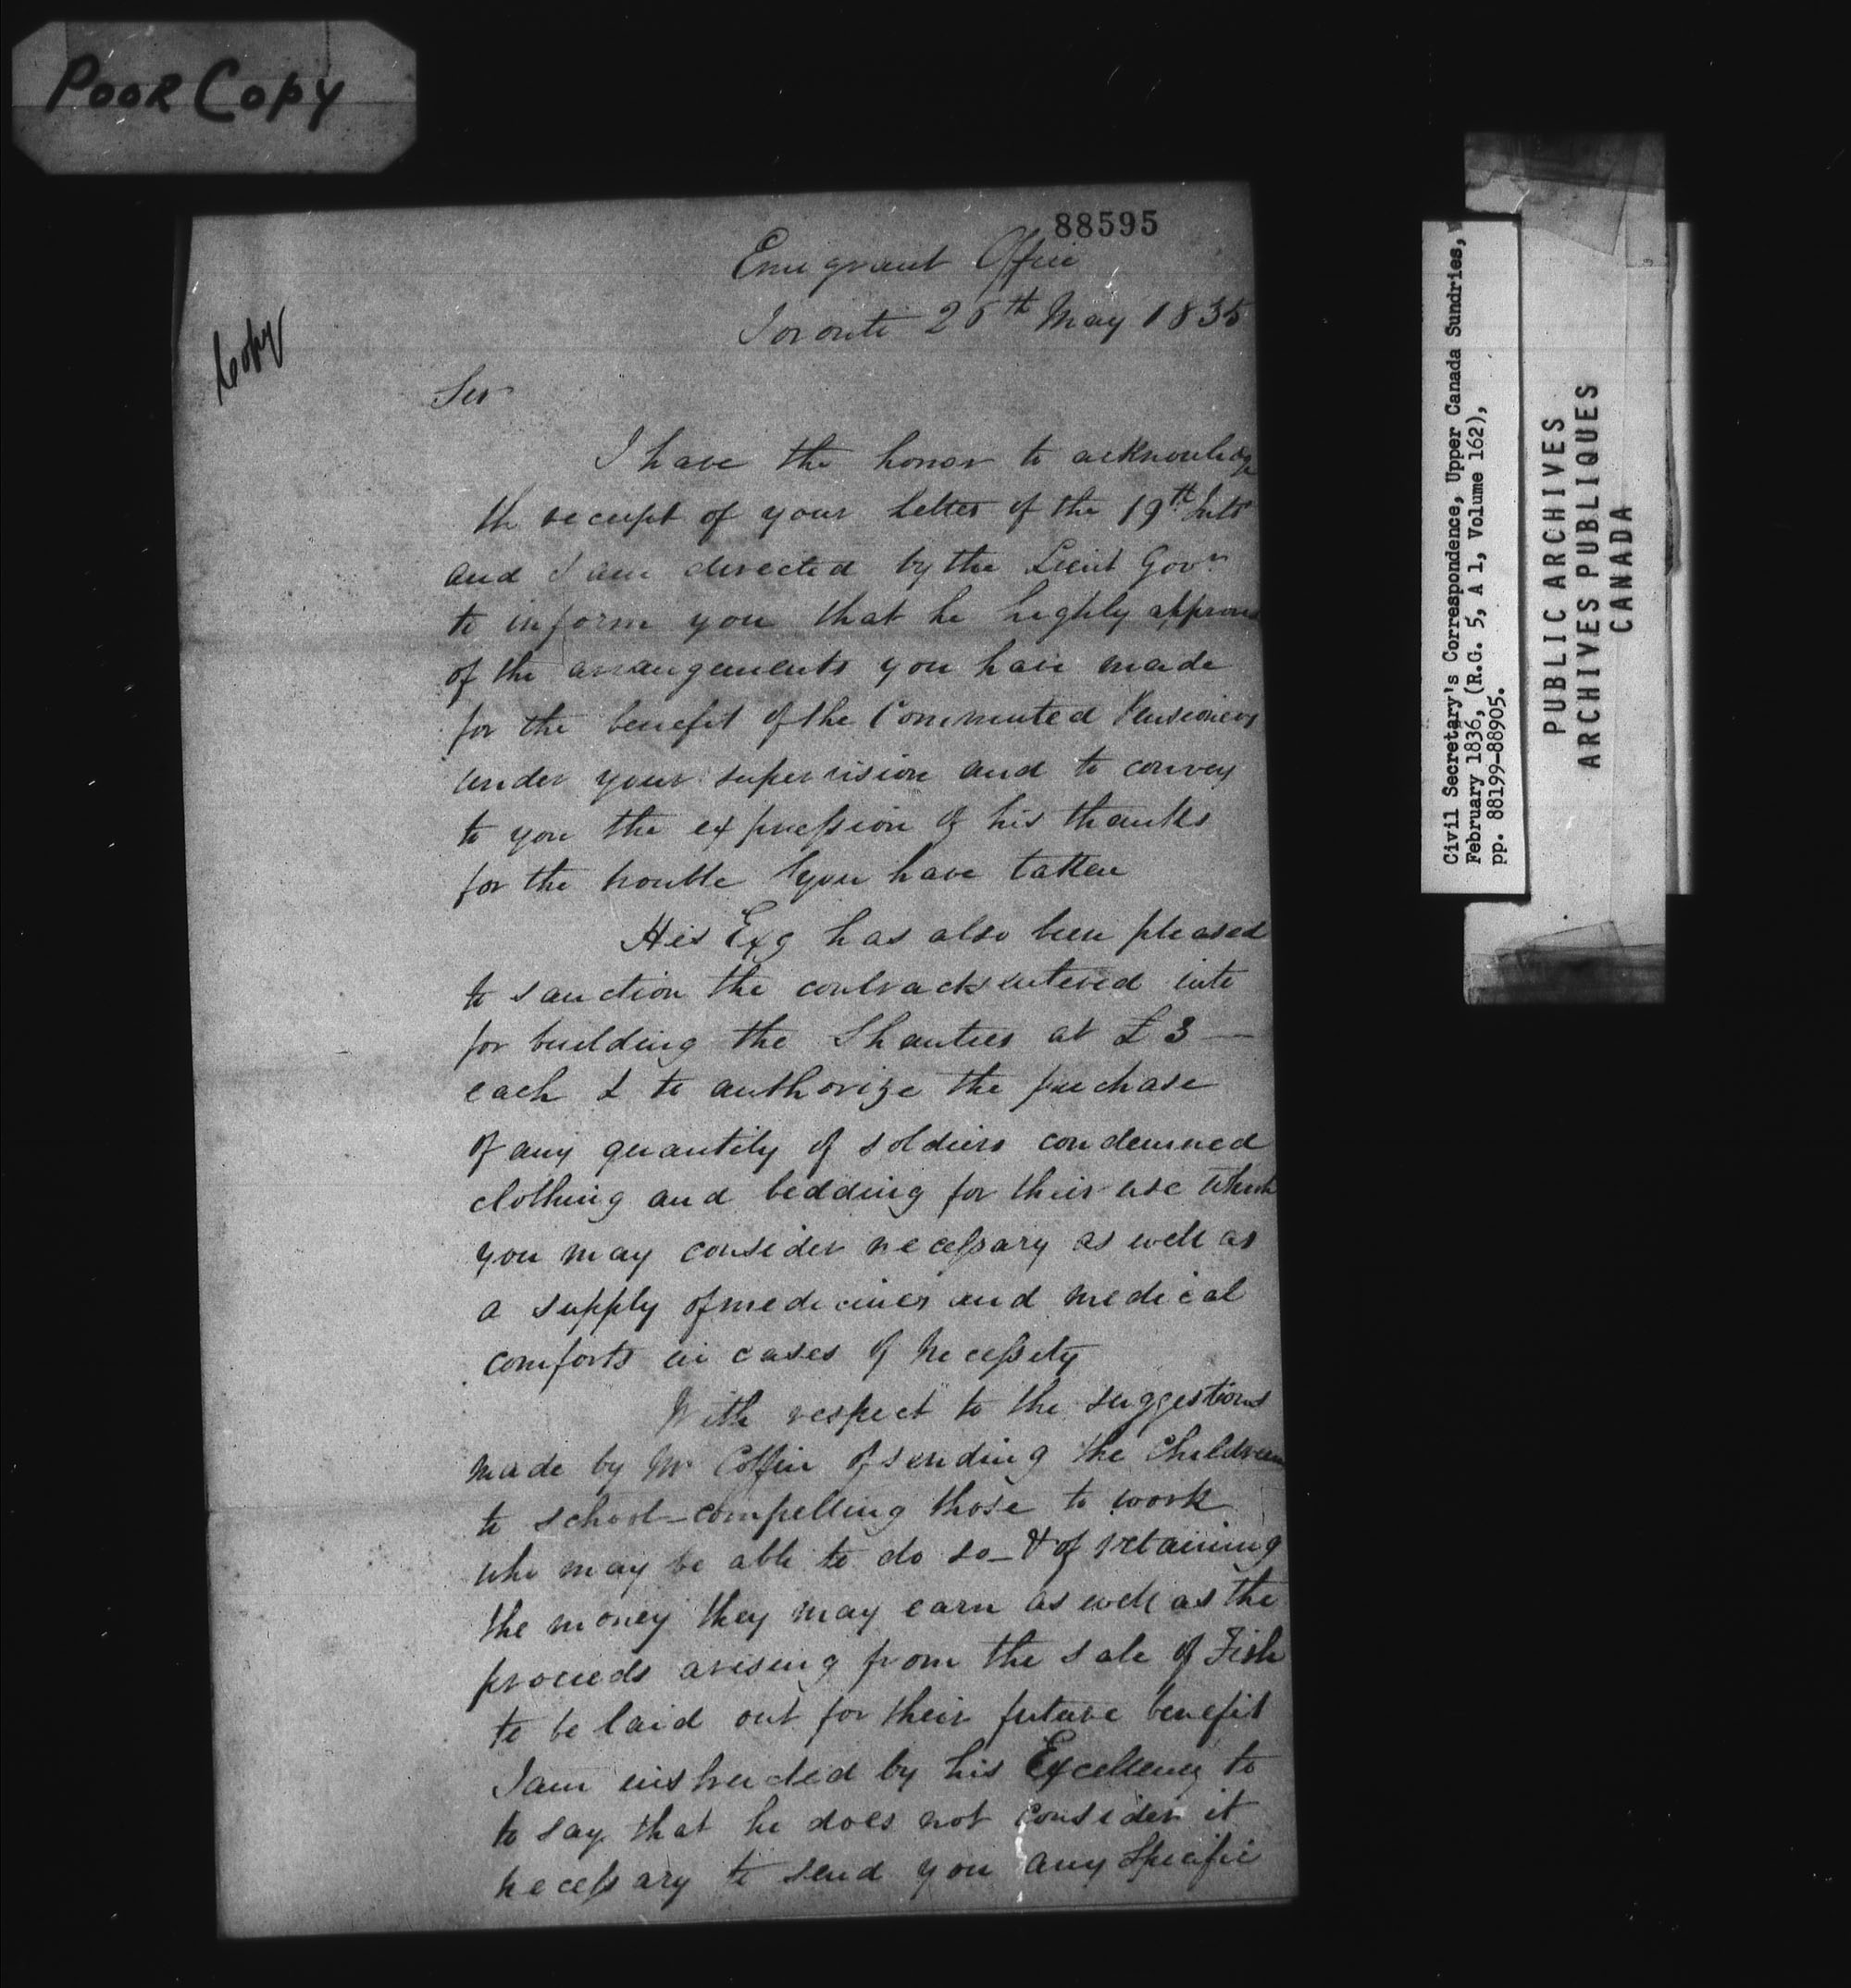 POOR COPY
88595
Emigrant Office
Toronto 26th May 1835
Copy
Sir
I have the honor to acknowledge
the receipt of your letter of the 19th Inst
and I am directed by the Lieut Govr
to inform you that he highly approves
of the arrangements you have made
for the benefit of the Commuted Pensioners
under your supervision and to convey
to you the expression of his thanks
for the trouble you have taken
His Exy has also been pleased
to sanction the contracts entered into
for building the Shanties at £3 —
each & to authorize the purchase
of any quantity of soldiers condemned
clothing and bedding for their use which
you may consider necessary as well as
a supply of medicines and medical
comforts in cases of necessity
With respect to the suggestions
made by Mr Coffin of sending the Children
to school – compelling those to work
who may be able to do so – & of retaining
the money they may earn as well as the
proceeds arising from the sale of Fish
to be laid out for their future benefit
I am instructed by his Excellency to
to say that he does not consider it
necessary to send you any specific
Civil Secretary's Correspondence, Upper Canada Sundries,
February 1836, (R.G. 5, A 1, Volume 162),
pp. 88199-88905.
PUBLIC ARCHIVES
ARCHIVES PUBLIQUES
CANADA